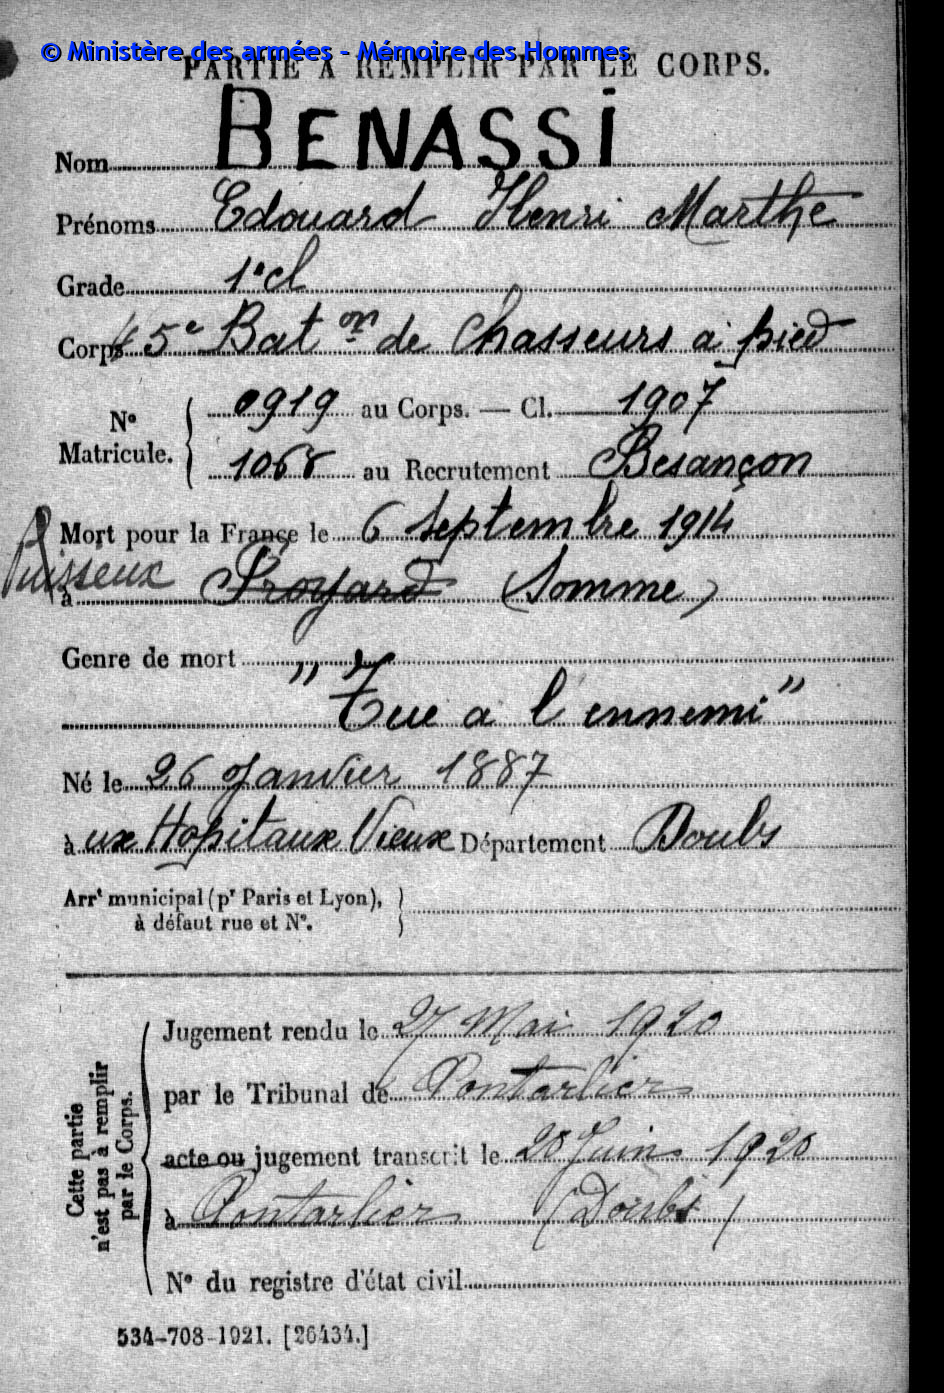 © Ministère des armées - Mémoire des Hommes
PARTIE À REMPLIR PAR LE CORPS.
Nom BENASSI
Prénoms Edouard Henri Marthe
Grade 1e cl
Corps 45e Bat on de Chasseurs à pied
No Matricule. { 0919 au Corps. — Cl. 1907
1068 au Recrutement Besançon
Mort pour la France le 6 Septembre 1914
Puisseux
à Proyard (Somme)
Genre de mort
"Tué a l'ennemi"
Né le 26 Janvier 1887
à ux Hopitaux Vieux Département Doubs
Arrt municipal (pr Paris et Lyon), }
à défaut rue et No.
Cette partie n'est pas à remplir par le Corps.
Jugement rendu le 27 Mai 1920
par le Tribunal de Pontarlier
acte ou jugement transcrit le 20 Juin 1920
à Pontarlier (Doubs)
No du registre d'état civil
534-708-1921. [26434.]